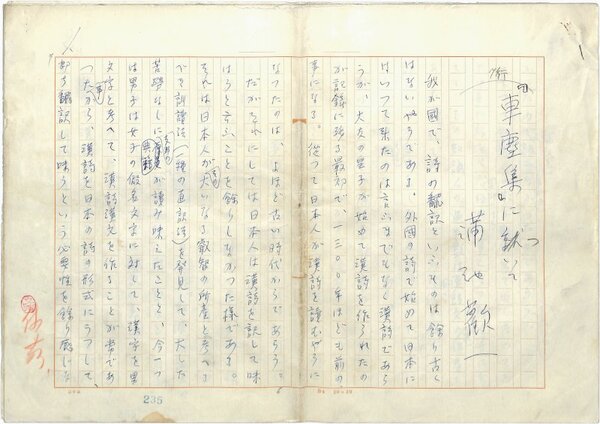 『車塵集』に就いて
蒲池歓一
我が國で、詩の飜訳といふものは餘り古く
はないやうである。外國の詩で始めて日本に
はいつて来たのは言ふまでもなく漢詩であら
うが、大友の皇子が始めて漢詩を作られたの
が記録に残る最初で、一三〇〇年ほども前の
事になる。従つて日本人が漢詩を讀むやうに
なつたのは、よほど古い時代からであらう。
だがそれにしては日本人は漢詩を訳して味
はうと云ふことを餘りしなかつた様である。
それは日本人が大いなる叡智の所産と考へ
でる訓讀法(一種の直訳法)を発見して、大した
苦労なしに讀み味えたことと、今一つ
は男子は女子の假名文字に対して、漢字を男
文字と考へて、漢詩漢文を作ることが常であ
つた事から、漢詩を日本の詩の形式にうつして、
即ち飜訳して味うという必要性を餘り感じな
235